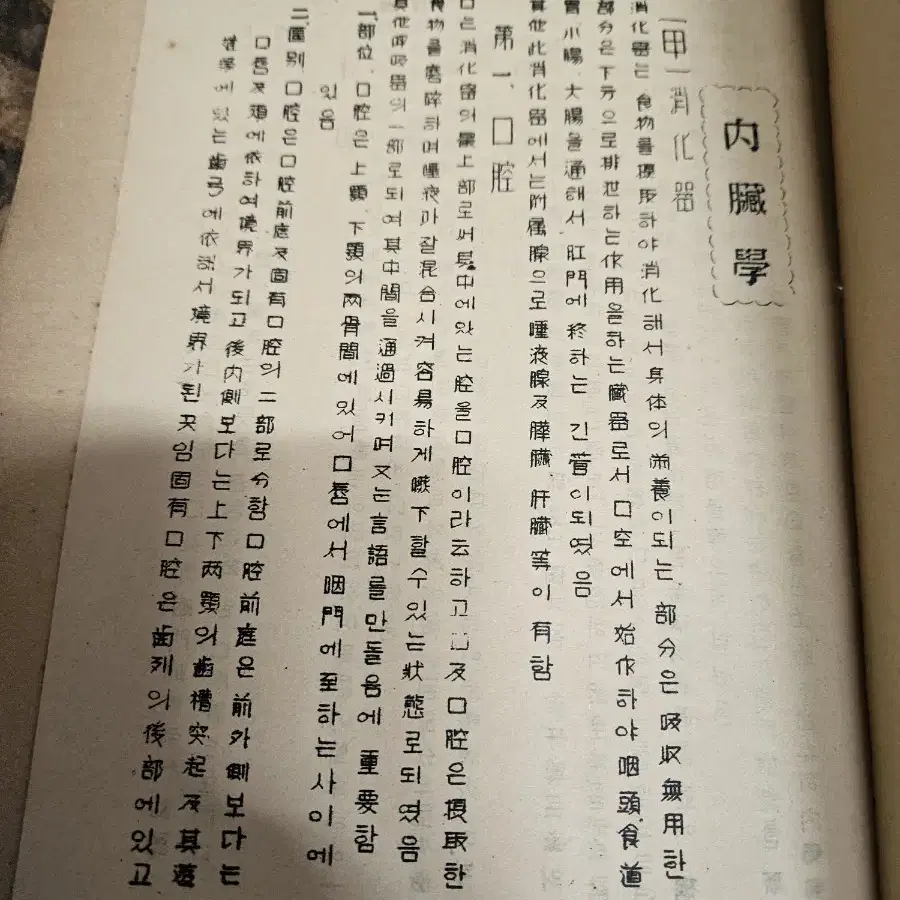 内臟學
(甲) 消化器
消化器는 食物를 攝取하야 消化해서 身体의 栄養이되는 部分은 吸収無用한
部分은 下方으로 排泄하는 作用을하는 臟器로서 口空에서 始作하야 咽頭食道
胃 小腸、大腸을 通해서 肛門에 終하는 긴 管이되였음
其他 此 消化器에서는 附属腺으로 唾液腺及 膵臟 肝臟 等이 有함
第一、口腔
口는 消化器의 最上部로써 其中에있는 腔을 口腔이라云하고 口及口腔은 摂取한
食物를 磨碎하며 唾液과 잘混合시켜 容易하게 嚥下할수있는 狀態로되였음
其他 呼吸器의 一部로되여 其中間을 通過시키며 又는 言語를만들음에 重要함
一、部位、口腔은 上顎、下顎의 両骨間에있어 口唇에서 咽門에至하는사이에
있음
二、區別、口腔은 口腔前庭及固有口腔의 二部로分함 口腔前庭은 前外側보다는
口唇及頬에依하여 境界가되고 後内側보다는 上下両顎의 歯槽突起及其
에있는 歯弓에依해서 境界가된곳임 固有口腔은 歯列의後部에있고